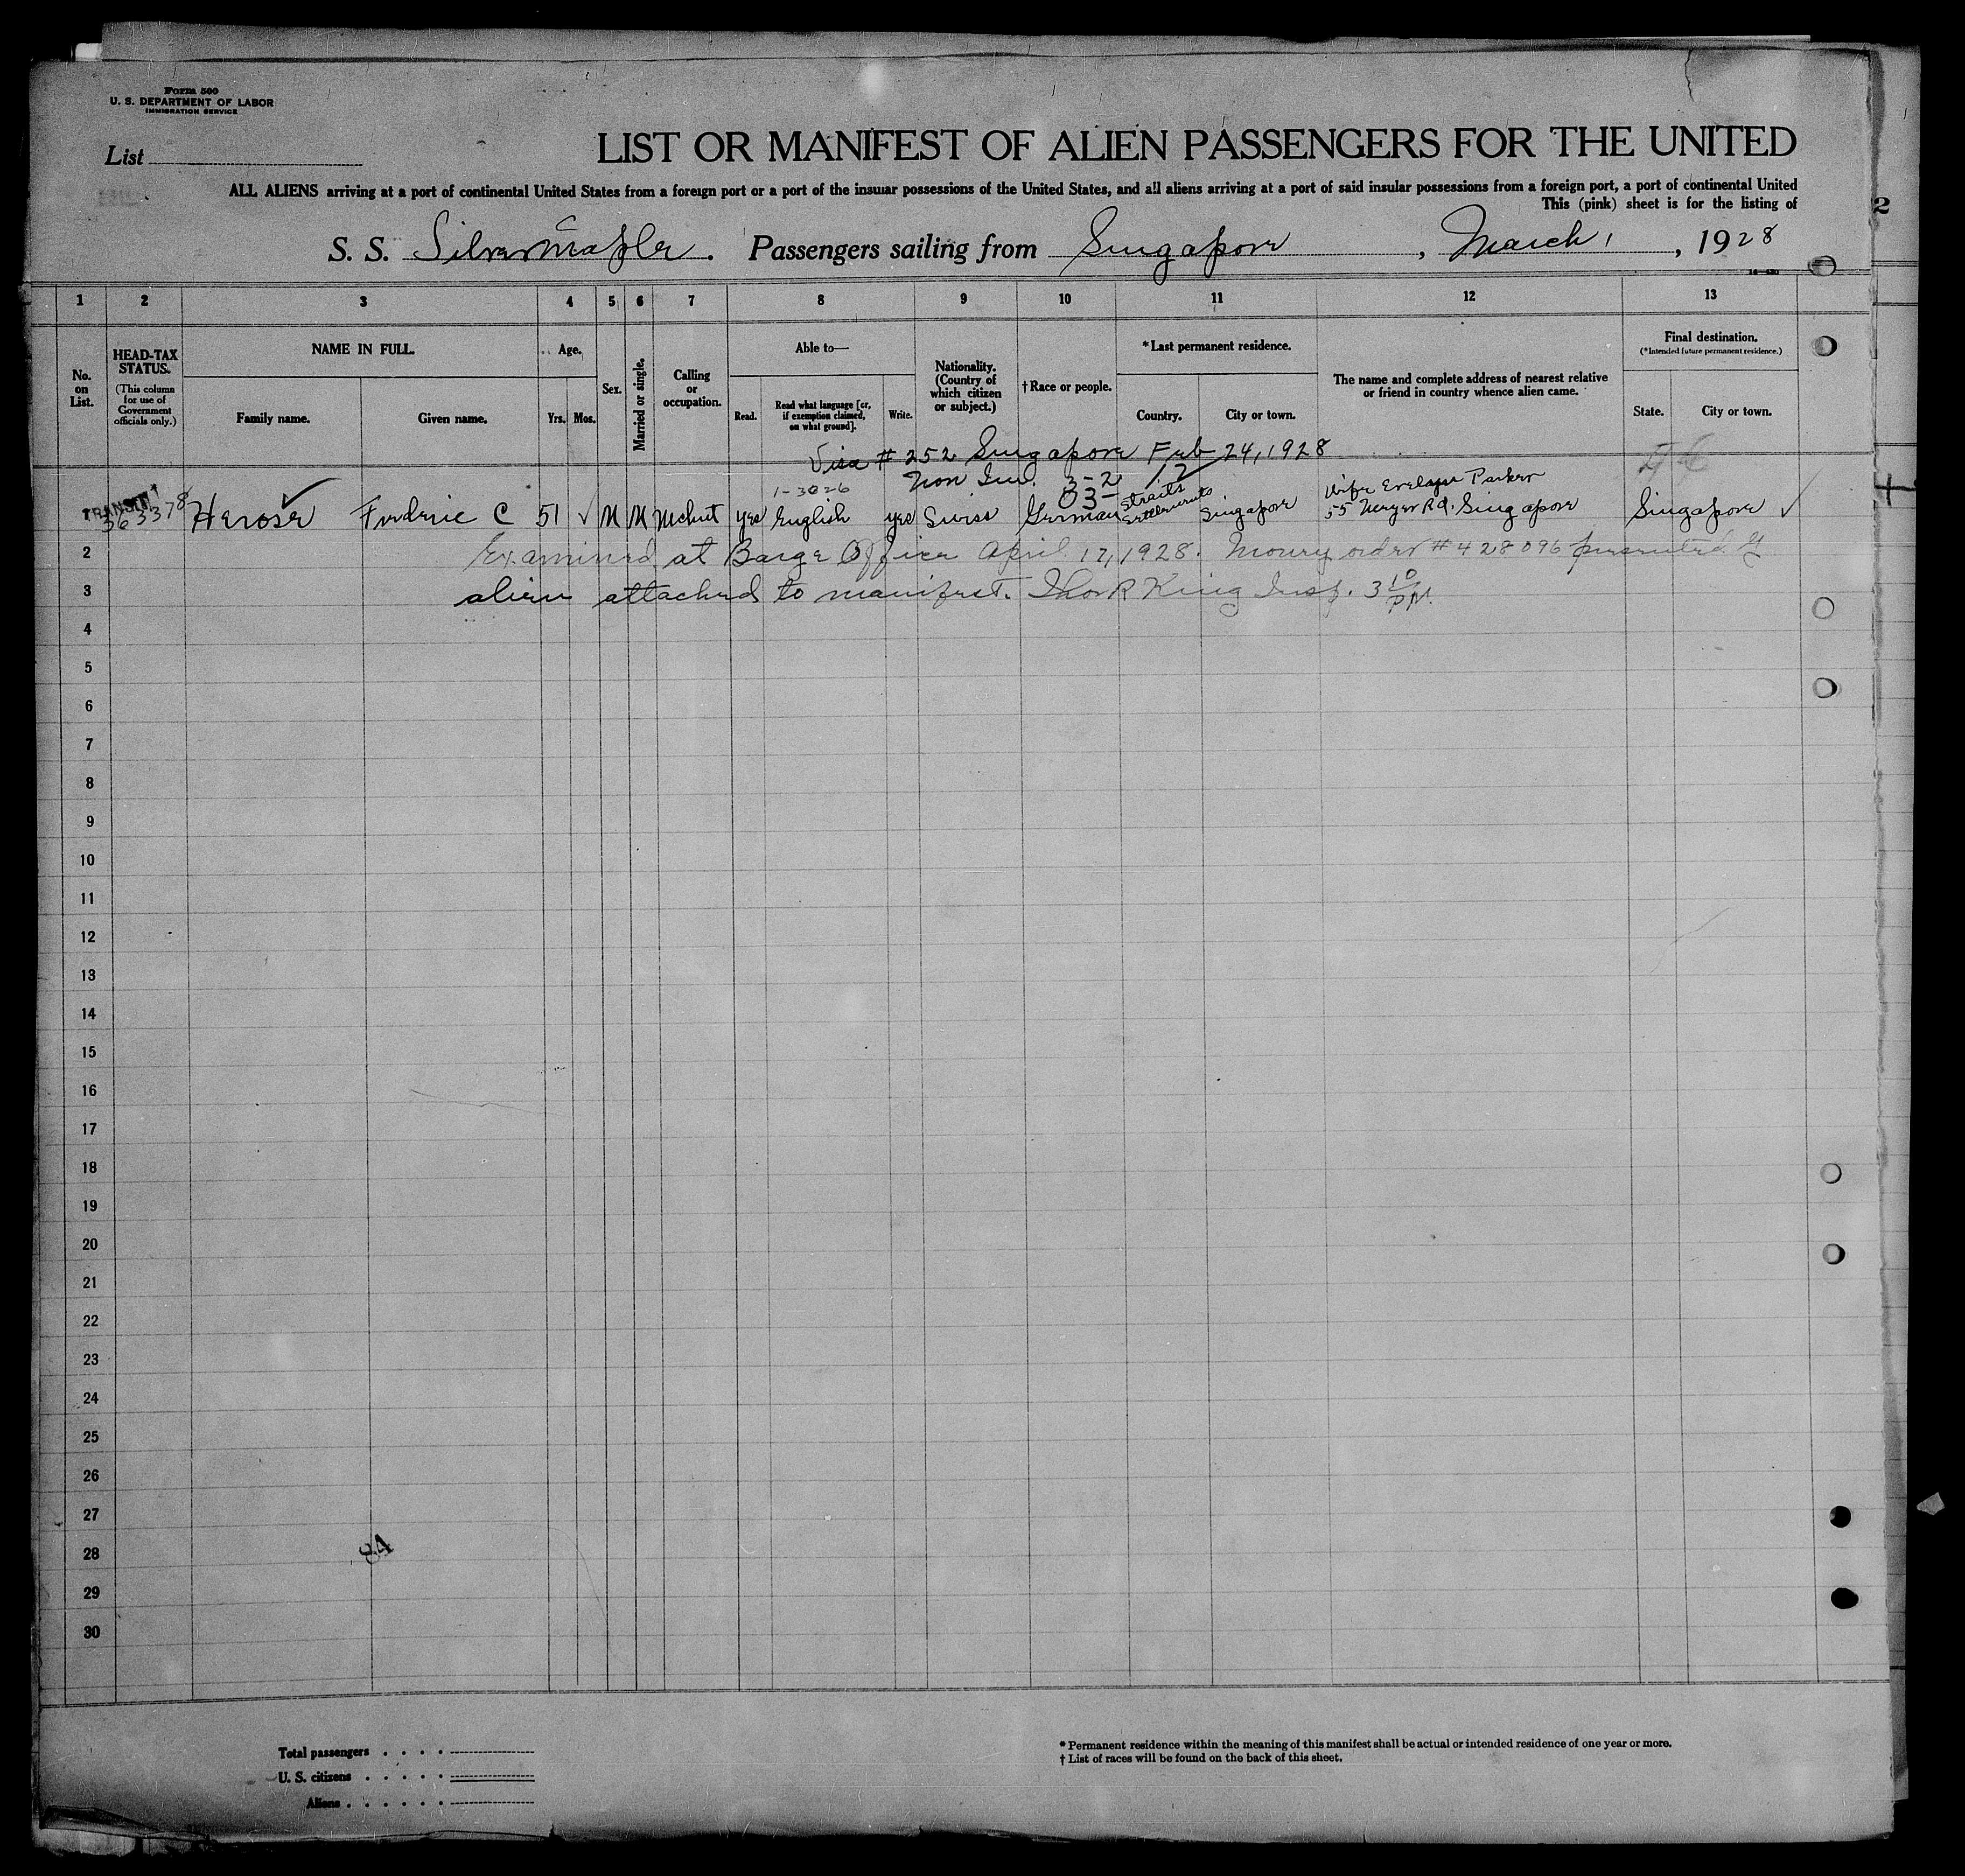 Form 500
U. S. DEPARTMENT OF LABOR
IMMIGRATION SERVICE
List
LIST OR MANIFEST OF ALIEN PASSENGERS FOR THE UNITED
ALL ALIENS arriving at a port of continental United States from a foreign port or a port of the insular possessions of the United States, and all aliens arriving at a port of said insular possessions from a foreign port, a port of continental United
This (pink) sheet is for the listing of
2
S. S. Silvermaple. Passengers sailing from Singapore, March 1, 1928
1 2 3 4 5 6 7 8 9 10 11 12 13
No. on List.
HEAD-TAX STATUS.
(This column for use of Government officials only.)
NAME IN FULL.
Family name. Given name.
Age.
Yrs. Mos.
Sex.
Married or single.
Calling or occupation.
Able to—
Read. Read what language [or, if exemption claimed, on what ground]. Write.
Nationality. (Country of which citizen or subject.)
†Race or people.
*Last permanent residence.
Country. City or town.
The name and complete address of nearest relative or friend in country whence alien came.
Final destination.
(*Intended future permanent residence.)
State. City or town.
Visa # 252 Singapore Feb 24, 1928
Non Im. 3-2
1-3026
TRANSIT
363378
1 Herosé Frederic C 51 ✓ M M Mchnt yes English yes Swiss German Straits Settlements Singapore Wife Evelyn Parker 55 Rd. Singapore Singapore ✓
2 Examined at Barge Office April 17, 1928. Money order # 428096 presented by
3 alien attached to manifest. Thos R King Insp. 3 10 PM.
4
5
6
7
8
9
10
11
12
13
14
15
16
17
18
19
20
21
22
23
24
25
26
27
28
84
29
30
Total passengers
U. S. citizens
Aliens
* Permanent residence within the meaning of this manifest shall be actual or intended residence of one year or more.
† List of races will be found on the back of this sheet.